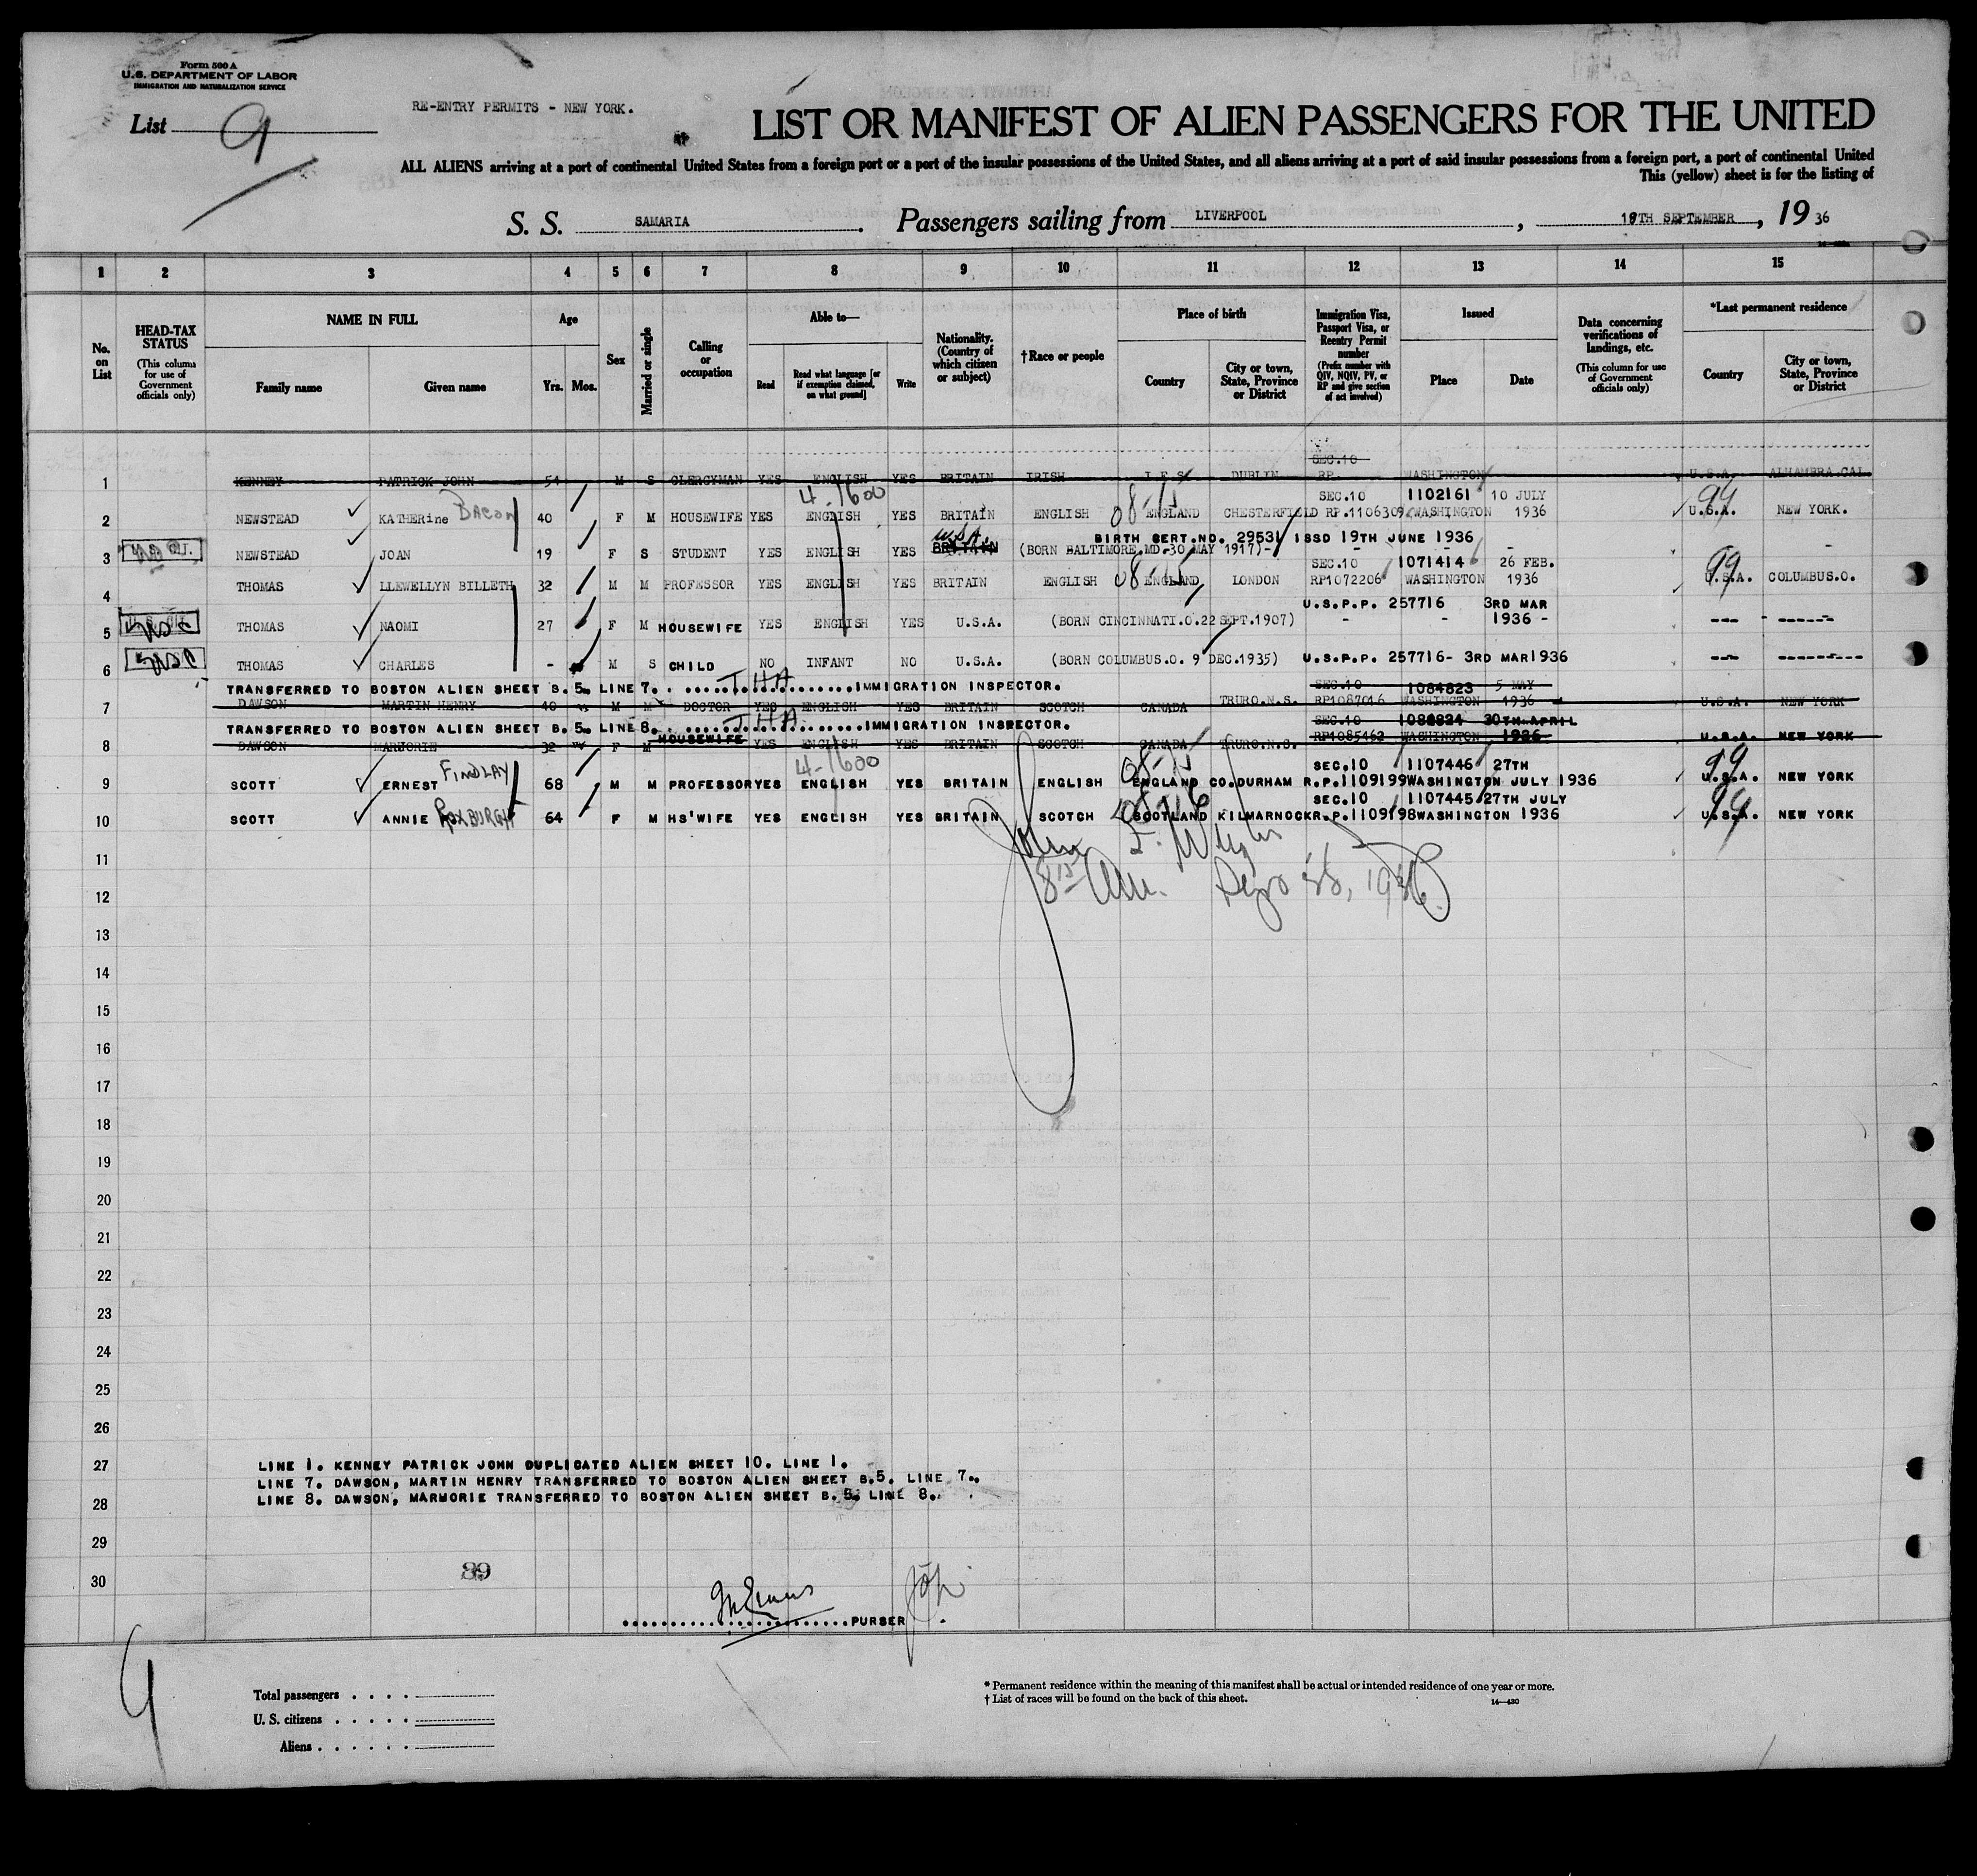 Form 500 A
U.S. DEPARTMENT OF LABOR
IMMIGRATION AND NATURALIZATION SERVICE
List 9
RE-ENTRY PERMITS - NEW YORK.
LIST OR MANIFEST OF ALIEN PASSENGERS FOR THE UNITED
ALL ALIENS arriving at a port of continental United States from a foreign port or a port of the insular possessions of the United States, and all aliens arriving at a port of said insular possessions from a foreign port, a port of continental United
This (yellow) sheet is for the listing of
S. S. SAMARIA. Passengers sailing from LIVERPOOL, 19TH SEPTEMBER, 19 36
1 2 3 4 5 6 7 8 9 10 11 12 13 14 15
No. on List
HEAD-TAX STATUS
(This column for use of Government officials only)
NAME IN FULL
Family name Given name
Age
Yrs. Mos.
Sex
Married or single
Calling or occupation
Able to—
Read Read what language [or if exemption claimed, on what ground] Write
Nationality. (Country of which citizen or subject)
†Race or people
Place of birth
Country City or town, State, Province or District
Immigration Visa, Passport Visa, or Reentry Permit number
(Prefix number with QIV, NQIV, PV, or RP and give section of act involved)
Issued
Place Date
Data concerning verifications of landings, etc.
(This column for use of Government officials only)
*Last permanent residence
Country City or town, State, Province or District
SEC.10
1 KENNEY PATRICK JOHN 54 M S CLERGYMAN YES ENGLISH YES BRITAIN IRISH I.F.S. DUBLIN RP WASHINGTON U.S.A. ALHAMBRA.CAL
4-1600 08-75 SEC.10 1102161 10 JULY 99
2 NEWSTEAD KATHERine Bacon 40 F M HOUSEWIFE YES ENGLISH YES BRITAIN ENGLISH ENGLAND CHESTERFIELD RP.1106309 WASHINGTON 1936 U.S.A. NEW YORK.
U.S.A. BIRTH CERT.NO. 29531 ISSD 19TH JUNE 1936
3 NEWSTEAD JOAN 19 F S STUDENT YES ENGLISH YES BRITAIN (BORN BALTIMORE,MD-30 MAY 1917)- - - - -
SEC.10 1071414 26 FEB. 99
4 THOMAS LLEWELLYN BILLETH 32 M M PROFESSOR YES ENGLISH YES BRITAIN ENGLISH 08-75 ENGLAND LONDON RP1072206 WASHINGTON 1936 U.S.A. COLUMBUS.O.
U.S.P.P. 257716 3RD MAR
5 THOMAS NAOMI 27 F M HOUSEWIFE YES ENGLISH YES U.S.A. (BORN CINCINNATI.O.22 SEPT.1907) - - 1936 - --- ------
6 THOMAS CHARLES - M S CHILD NO INFANT NO U.S.A. (BORN COLUMBUS.O. 9 DEC.1935) U.S.P.P. 257716- 3RD MAR1936 --- ---------
TRANSFERRED TO BOSTON ALIEN SHEET B.5. LINE 7. ..................IMMIGRATION INSPECTOR. SEC.10 1084823 5 MAY
7 DAWSON MARTIN HENRY 40 M M DOCTOR YES ENGLISH YES BRITAIN SCOTCH CANADA TRURO.N.S. RP1087016 WASHINGTON 1936 U.S.A. NEW YORK
TRANSFERRED TO BOSTON ALIEN SHEET B.5. LINE 8. ..................IMMIGRATION INSPECTOR. SEC.10 30TH APRIL
8 DAWSON MARJORIE 32 F M HOUSEWIFE YES ENGLISH YES BRITAIN SCOTCH CANADA TRURO.N.S. RP1085462 WASHINGTON 1936 U.S.A. NEW YORK
4-1600 08-75 SEC.10 1107446 27TH 99
9 SCOTT ERNEST FINDLAY 68 M M PROFESSOR YES ENGLISH YES BRITAIN ENGLISH ENGLAND CO.DURHAM R.P.1109199 WASHINGTON JULY 1936 U.S.A. NEW YORK
SEC.10 1107445 27TH JULY 99
10 SCOTT ANNIE ROXBURGH 64 F M HS'WIFE YES ENGLISH YES BRITAIN SCOTCH SCOTLAND KILMARNOCK R.P.1109198 WASHINGTON 1936 U.S.A. NEW YORK
11
12
13
14
15
16
17
18
19
20
21
22
23
24
25
26
27 LINE 1. KENNEY PATRICK JOHN DUPLICATED ALIEN SHEET 10. LINE 1.
LINE 7. DAWSON, MARTIN HENRY TRANSFERRED TO BOSTON ALIEN SHEET B.5. LINE 7.
28 LINE 8. DAWSON, MARMORIE TRANSFERRED TO BOSTON ALIEN SHEET B.5. LINE 8.
29
30
89
........................PURSER
9
Total passengers . . . .
U. S. citizens . . . . .
Aliens . . . . . .
* Permanent residence within the meaning of this manifest shall be actual or intended residence of one year or more.
† List of races will be found on the back of this sheet.
14—430